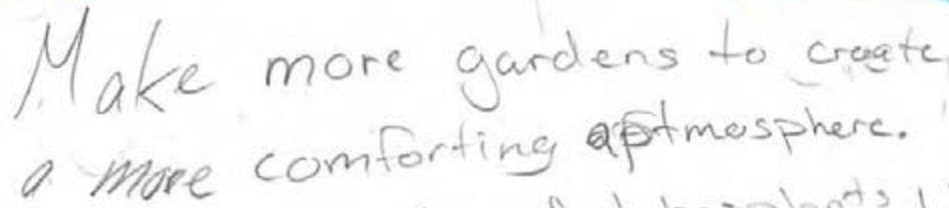 Make more gardens to create
a more comforting atmosphere.